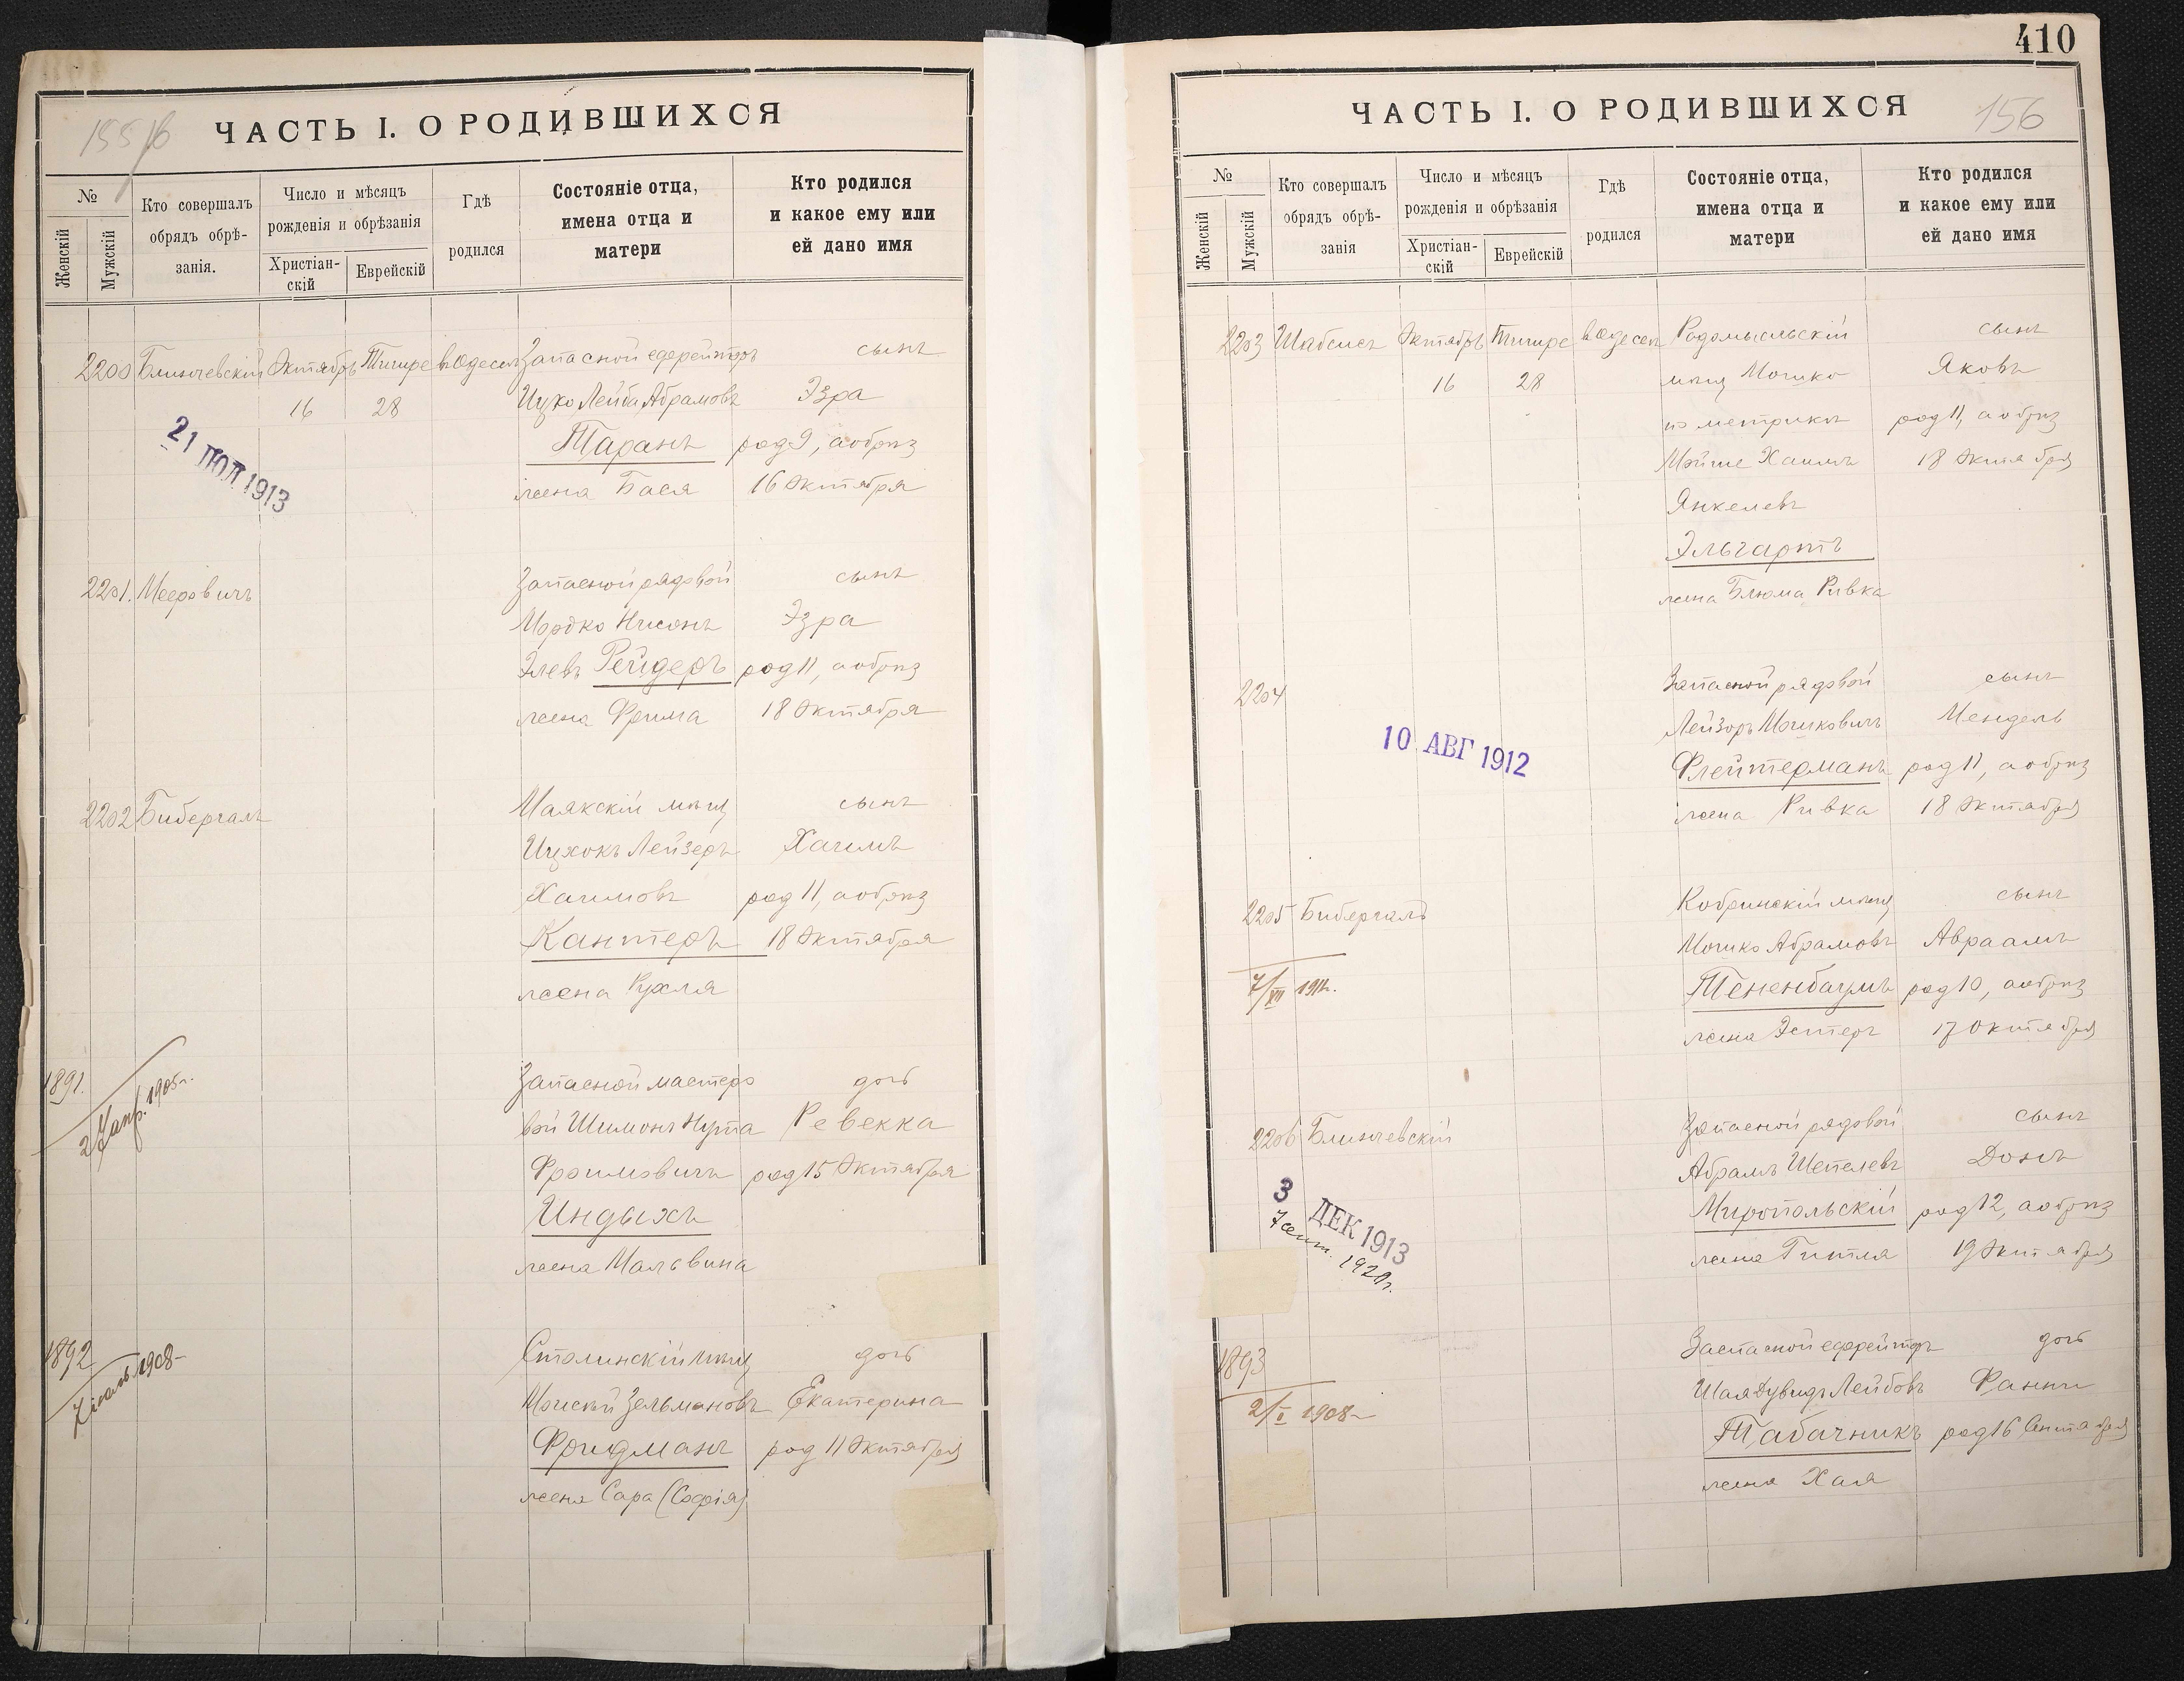 155/6
ЧАСТЬ I. О РОДИВШИХСЯ
№
Женскій
Мужскій
Кто совершалъ
обрядъ обрѣ-
занія.
Число и мѣсяцъ
рожденія и обрѣзанія
Христіан-
скій
Еврейскій
Гдѣ
родился
Состояніе отца,
имена отца и
матери
Кто родился
и какое ему или
ей дано имя
2200 Блинчевскій Октябрь Тишре в Одессѣ Запасной ефрейторъ сынъ
16 28 Ицко Лейба Абрамовъ Эзра
21 ІЮЛ 1913
Таранъ род 9, а обрѣз
жена Бася 16 Октября
2201. Мееровичъ Запасной рядовой сынъ
Мордко Нисонъ Эзра
Элевъ Рейдеръ род 11, а обрѣз
жена Фрима 18 Октября
2202 Бибергалъ Маякскій мѣщ сынъ
Ицхокъ Лейзеръ Хаимъ
Хаимовъ род 11, а обрѣз
Кантеръ 18 Октября
жена Рухля
1891. Запасной мастеро дочь
2 Janр. 1905 г.
вой Шимонъ Нута Ревекка
Фроимовичъ род 15 Октября
Индыхъ
жена Мальвина
1892 Столинскій мѣщ дочь
1908
Моисей Зельмановъ Екатерина
Фридманъ род 11 Октября
жена Сара (Софія)
410
ЧАСТЬ I. О РОДИВШИХСЯ
156
№
Женскій
Мужскій
Кто совершалъ
обрядъ обрѣ-
занія
Число и мѣсяцъ
рожденія и обрѣзанія
Христіан-
скій
Еврейскій
Гдѣ
родился
Состояніе отца,
имена отца и
матери
Кто родился
и какое ему или
ей дано имя
2203 Шабсисъ Октябрь Тишре в Одессѣ Радомысльскій сынъ
16 28 мѣщ Мошко Яковъ
по метрикѣ род 11, а обрѣз
Мойше Хаимъ 18 Октября
Янкелевъ
Эльгартъ
жена Блюма Ривка
2204 Запасной рядовой сынъ
Лейзоръ Мошковичъ Мендель
10 АВГ 1912
Флейтерманъ род 11, а обрѣз
жена Ривка 18 Октября
2205 Бибергалъ Кобринскій мѣщ сынъ
Мошко Абрамовъ Авраамъ
7/XII 1911г.
Тененбаумъ род 10, а обрѣз
жена Эстеръ 17 Октября
2206 Блинчевскій Запасной рядовой сынъ
Абрамъ Шепелевъ Донъ
3 ДЕК 1913
Миропольскій род 12, а обрѣз
7 сент. 1920г.
жена Гитля 19 Октября
1893 Заспасной ефрейторъ дочь
2/X 1908
Шая Дувидъ Лейбовъ Фанни
Табачникъ род 16 Сентября
жена Хая